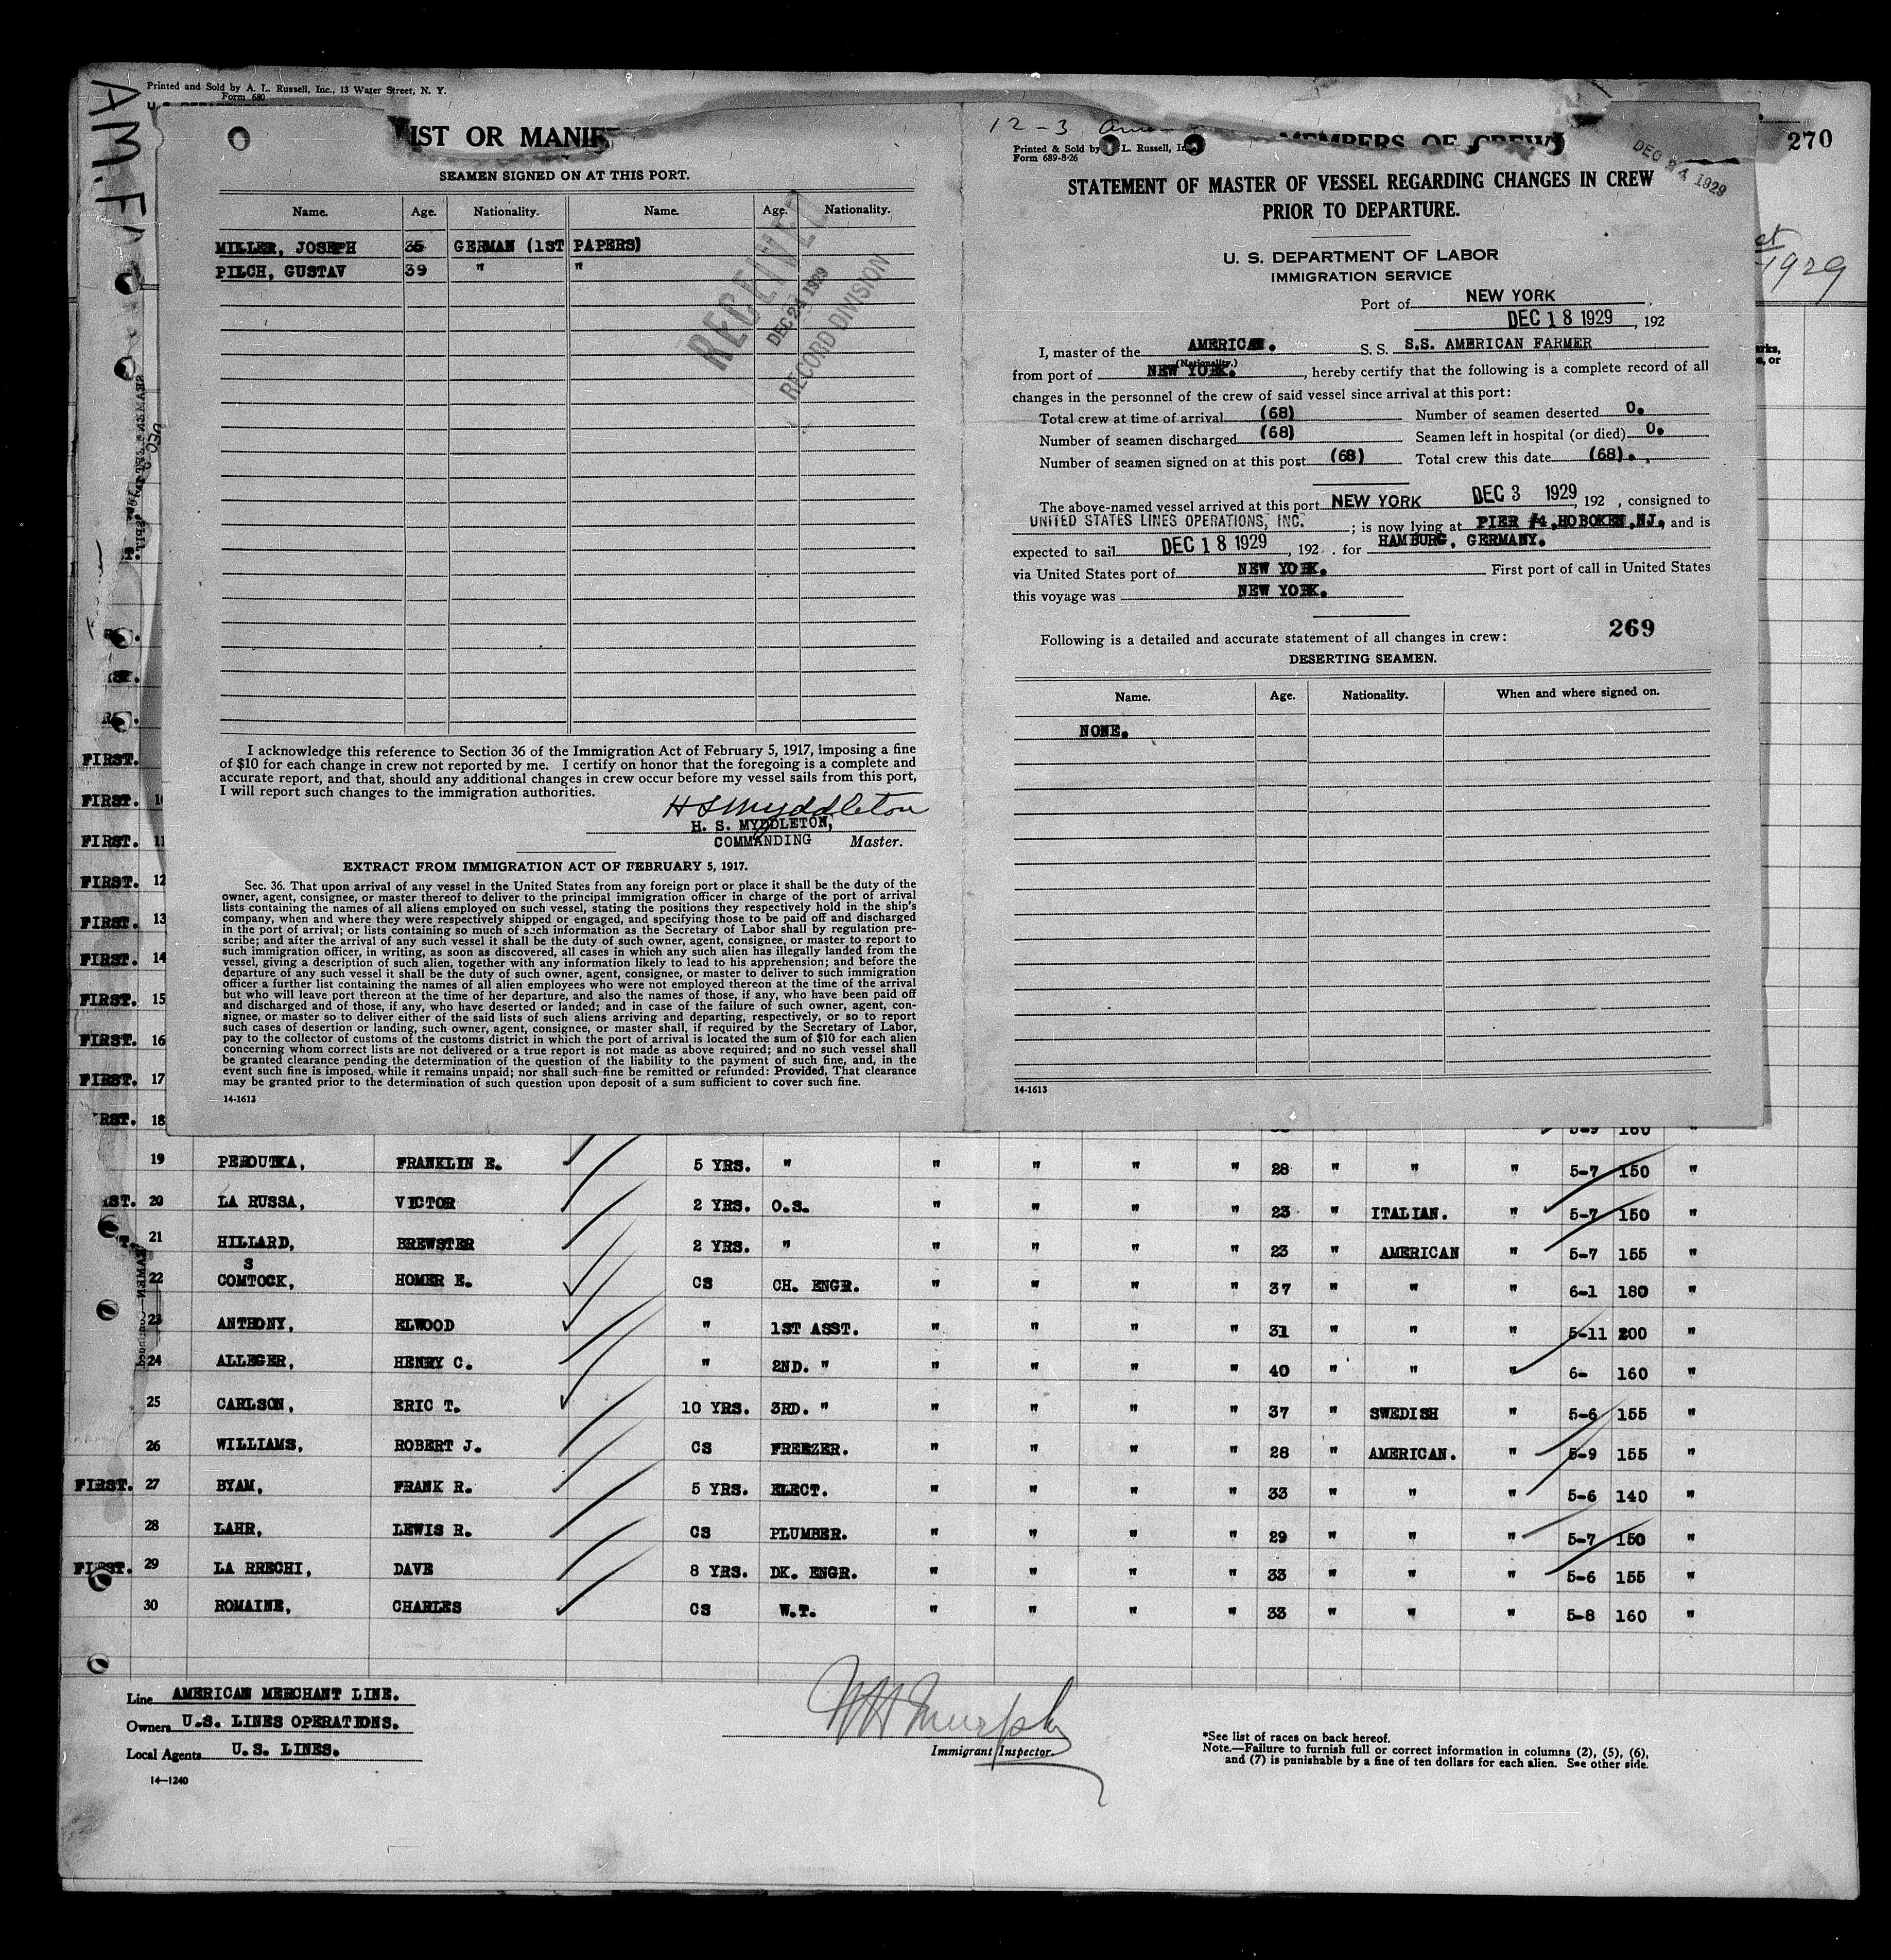 AM. F
Printed and Sold by A. L. Russell, Inc., 13 Water Street, N. Y.
Form 680
IST OR MANIF
SEAMEN SIGNED ON AT THIS PORT.
Name. Age. Nationality. Name. Age. Nationality.
MILLER, JOSEPH 35 GERMAN (1ST PAPERS)
PILCH, GUSTAV 39 " "
RECEIVED
DEC 24 1929
RECORD DIVISION
I acknowledge this reference to Section 36 of the Immigration Act of February 5, 1917, imposing a fine
of $10 for each change in crew not reported by me. I certify on honor that the foregoing is a complete and
accurate report, and that, should any additional changes in crew occur before my vessel sails from this port,
I will report such changes to the immigration authorities.
H S Myddleton
H. S. MYDDLETON,
COMMANDING Master.
EXTRACT FROM IMMIGRATION ACT OF FEBRUARY 5, 1917.
Sec. 36. That upon arrival of any vessel in the United States from any foreign port or place it shall be the duty of the
owner, agent, consignee, or master thereof to deliver to the principal immigration officer in charge of the port of arrival
lists containing the names of all aliens employed on such vessel, stating the positions they respectively hold in the ship's
company, when and where they were respectively shipped or engaged, and specifying those to be paid off and discharged
in the port of arrival; or lists containing so much of such information as the Secretary of Labor shall by regulation pre-
scribe; and after the arrival of any such vessel it shall be the duty of such owner, agent, consignee, or master to report to
such immigration officer, in writing, as soon as discovered, all cases in which any such alien has illegally landed from the
vessel, giving a description of such alien, together with any information likely to lead to his apprehension; and before the
departure of any such vessel it shall be the duty of such owner, agent, consignee, or master to deliver to such immigration
officer a further list containing the names of all alien employees who were not employed thereon at the time of the arrival
but who will leave port thereon at the time of her departure, and also the names of those, if any, who have been paid off
and discharged and of those, if any, who have deserted or landed; and in case of the failure of such owner, agent, con-
signee, or master so to deliver either of the said lists of such aliens arriving and departing, respectively, or so to report
such cases of desertion or landing, such owner, agent, consignee, or master shall, if required by the Secretary of Labor,
pay to the collector of customs of the customs district in which the port of arrival is located the sum of $10 for each alien
concerning whom correct lists are not delivered or a true report is not made as above required; and no such vessel shall
be granted clearance pending the determination of the question of the liability to the payment of such fine, and, in the
event such fine is imposed, while it remains unpaid; nor shall such fine be remitted or refunded: Provided, That clearance
may be granted prior to the determination of such question upon deposit of a sum sufficient to cover such fine.
14-1613
12-3
MEMBERS OF CREW
270
Printed & Sold by L. Russell, Inc.
Form 689-8-26
DEC 24 1929
STATEMENT OF MASTER OF VESSEL REGARDING CHANGES IN CREW
PRIOR TO DEPARTURE.
U. S. DEPARTMENT OF LABOR
IMMIGRATION SERVICE
1929
Port of NEW YORK
DEC 18 1929, 192
I, master of the AMERICAN. S. S. S.S. AMERICAN FARMER
(Nationality.)
from port of NEW YORK., hereby certify that the following is a complete record of all
changes in the personnel of the crew of said vessel since arrival at this port:
Total crew at time of arrival (68) Number of seamen deserted 0.
Number of seamen discharged (68) Seamen left in hospital (or died) 0.
Number of seamen signed on at this port (68) Total crew this date (68).
The above-named vessel arrived at this port NEW YORK DEC 3 1929, 192 , consigned to
UNITED STATES LINES OPERATIONS, INC. ; is now lying at PIER #4, HOBOKEN, NJ, and is
expected to sail DEC 18 1929, 192 . for HAMBURG, GERMANY.
via United States port of NEW YORK. First port of call in United States
this voyage was NEW YORK.
269
Following is a detailed and accurate statement of all changes in crew:
DESERTING SEAMEN.
Name. Age. Nationality. When and where signed on.
NONE.
14-1613
FIRST.
FIRST. 10
FIRST. 11
FIRST. 12
FIRST. 13
FIRST. 14
FIRST. 15
FIRST. 16
FIRST. 17
RST. 18 5-9 160 "
19 PEROUTKA, FRANKLIN E. 5 YRS. " " " " " 28 " " " 5-7 150 "
ST. 20 LA RUSSA, VICTOR 2 YRS. O.S. " " " " 23 " ITALIAN. " 5-7 150 "
T. 21 HILLARD, BREWSTER 2 YRS. " " " " " 23 " AMERICAN " 5-7 155 "
S
22 COMTOCK, HOMER E. CS CH. ENGR. " " " " 37 " " " 6-1 180 "
23 ANTHONY, ELWOOD " 1ST ASST. " " " " 31 " " " 5-11 200 "
24 ALLEGER, HENRY C. " 2ND. " " " " " 40 " " " 6- 160 "
25 CARLSON, ERIC T. 10 YRS. 3RD. " " " " " 37 " SWEDISH " 5-6 155 "
26 WILLIAMS, ROBERT J. CS FREEZER. " " " " 28 " AMERICAN. " 5-9 155 "
FIRST. 27 BYAM, FRANK R. 5 YRS. ELECT. " " " " 33 " " " 5-6 140 "
28 LAHR, LEWIS R. CS PLUMBER. " " " " 29 " " " 5-7 150 "
FIRST. 29 LA RRECHI, DAVE 8 YRS. DK. ENGR. " " " " 33 " " " 5-6 155 "
30 ROMAINE, CHARLES CS W.T. " " " " 33 " " " 5-8 160 "
Line AMERICAN MERCHANT LINE.
Owners U.S. LINES OPERATIONS.
Local Agents U.S. LINES.
14-1240
Murphy
Immigrant Inspector.
*See list of races on back hereof.
Note.—Failure to furnish full or correct information in columns (2), (5), (6),
and (7) is punishable by a fine of ten dollars for each alien. See other side.